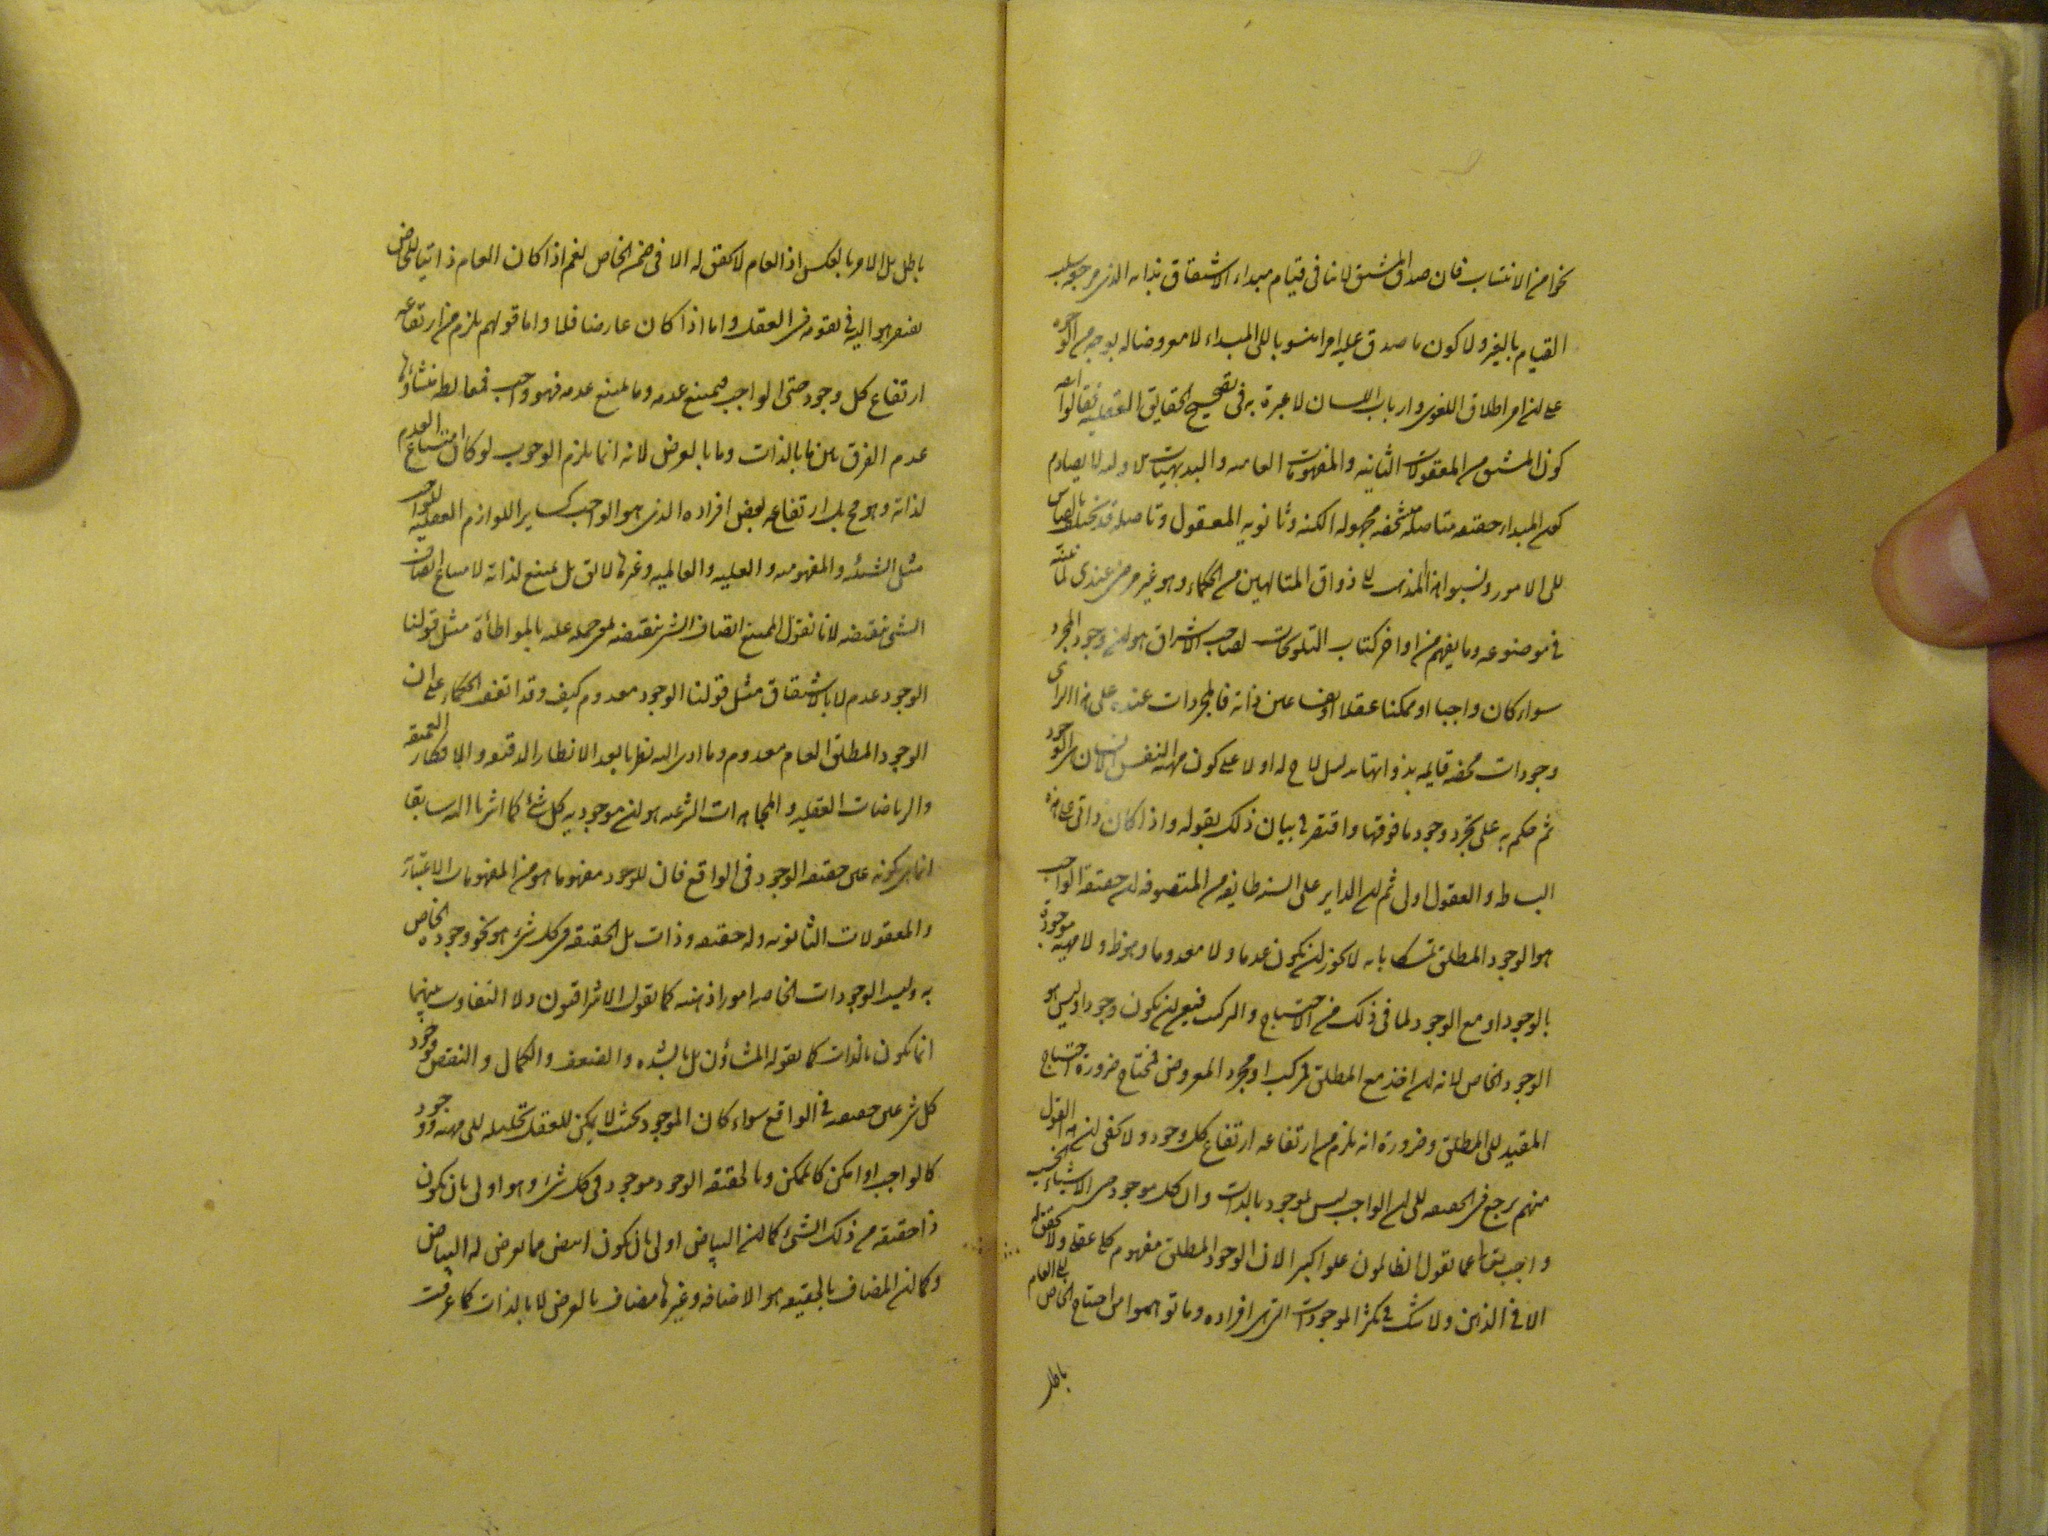 نحوا من الانتساب فان صدق المشتق لا ينافى قيام مبداء الاشتقاق بذاته الذى مرجعه سلب
القيام بالغير ولا كون ما صدق عليه امرا منسوبا الى المبداء لا معروضا له بوجه من الوجوه
على ان امر اطلاق اللغوى وارباب اللسان لا عبرة به فى تصحيح الحقايق العقليه فقالوا
كون المشتق من المعقولات الثانيه والمفهومات العامه والبديهيات الاوليه لا يصادم
كون المبداء حقيقه متاصله متشخصه مجهوله الكنه وثانويه المعقول وتاصله قد يختلف بالقياس
الى الامور ونسبوا هذا المذهب الى اذواق المتالهين من الحكماء وهو غير مرضى عندى لما
فى موضعه وما يفهم من اواخر كتاب التلويحات لصاحب الاشراق هو ان وجود المجرد
سواء كان واجبا او ممكنا عقلا او نفسا عين ذاته فالمجردات عنده على هذا الراى
وجودات محضه قايمه بذواتها بدليل لاح له اولا على كون مهيه النفس الانسان هى الوجود
ثم حكم به على تجرد وجود ما فوقها واقتصر فى بيان ذلك بقوله واذا كان ذاتى على هذه
البساطه والعقول اولى ثم ان الداير على السنه طايفه من المتصوفه ان حقيقه الواجب
هو الوجود المطلق تمسكا بانه لا يجوز ان يكون عدما ولا معدوما وهو ظ ولا مهيه موجودة
بالوجود او مع الوجود لما فى ذلك من الاحتياج والتركيب فتعين ان يكون وجودا وليس هو
الوجود الخاص لانه ان اخذ مع المطلق فمركب او مجرد المعروض فمحتاج ضرورة احتياج
المقيد الى المطلق وضرورة انه يلزم من ارتفاعه ارتفاع كل وجود ولا يخفى ان هذا القول
منهم يرجع فى الحقيقه الى ان الواجب ليس بموجود بالذات وان كل موجود من الاشياء
واجب تعالى عما يقول الظالمون علوا كبيرا لان الوجود المطلق مفهوم كلى عقلى ولا تحقق له
الا فى الذهن ولا شك فى تكثر الموجودات التى هى افراده وما توهموا من احتياج الخاص الى العام
باطل
باطل بل الامر بالعكس اذ العام لا تحقق له الا فى ضمن الخاص نعم اذا كان العام ذاتيا للخاص
يفتقر هو اليه فى تقومه فى العقل واما اذا كان عارضا فلا واما قولهم يلزم من ارتفاعه
ارتفاع كل وجود حتى الواجب فيمتنع عدمه وما يمتنع عدمه فهو واجب فمغالطه منشاؤها
عدم الفرق بين ما بالذات وما بالعرض لانه انما يلزم الوجوب لو كان امتناع العدم
لذاته وهو مح بل ارتفاعه بعض افراده الذى هو الواجب كساير اللوازم العقليه للواجب
مثل الشيئيه والمفهوميه و العليه والعالميه وغيرها لا يق بل يمتنع لذاته لامتناع اتصاف
الشى بنقيضه لانا نقول الممتنع اتصاف الشى بنقيضه بمعنى حمله عليه بالمواطأة مثل قولنا
الوجود عدم لا بالاشتقاق مثل قولنا الوجود معدوم كيف وقد اتفق الحكماء على ان
الوجود المطلق العام معدوم وما ادى اليه نظرنا بعد الانظار الدقيقه والافكار العميقه
والرياضات العقليه والمجاهدات الشرعيه هو ان موجوديه كل شئ كما اشرنا اليه سابقا
انما هى كونه على حقيقه الوجود فى الواقع فان للوجود مفهوما هو من المفهومات الاعتباريه
والمعقولات الثانويه وله حقيقه وذات بل الحقيقه فى كل شى هو نحو وجوده الخاص
به وليس الوجودات الخاصه امورا ذهنيه كما يقول الاشراقيون ولا التفاوت بينهما
انما يكون بالذات كما يقوله المشاؤن بل بالشده والضعف والكمال والنقص فوجود
كل شى على حقيقته فى الواقع سواء كان الموجود بحيث لا يمكن للعقل تحليله الى مهيه ووجود
كالواجب او امكن كالممكن وبالحقيقه الوجود موجود فى كل شى وهو اولى بان يكون
ذا حقيقه من ذلك الشئ كما ان البياض اولى بان يكون ابيض مما يعرض له البياض
وكما ان المضاف بالحقيقه هو الاضافه وغيرها مضاف بالعرض لا بالذات كما عرفت